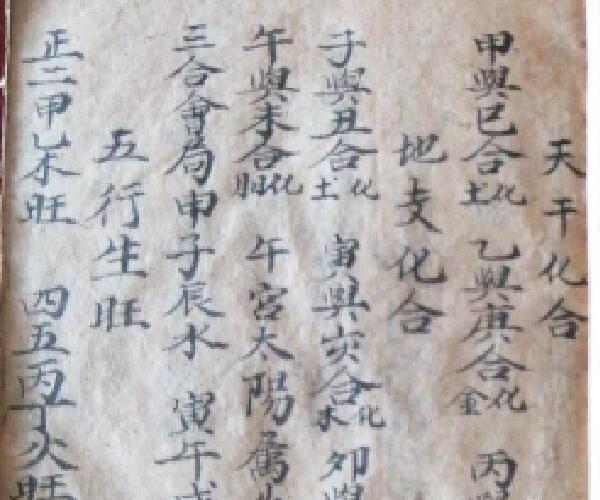 天干化合
甲與巳合化土 乙與庚合化金 丙與
地支化合
子與丑合化土 寅與亥合化木 卯與
午與未合化 午宮太陽屬
三合會局申子辰水 寅午戌
五行生旺
正二甲乙木旺 四五丙丁火旺